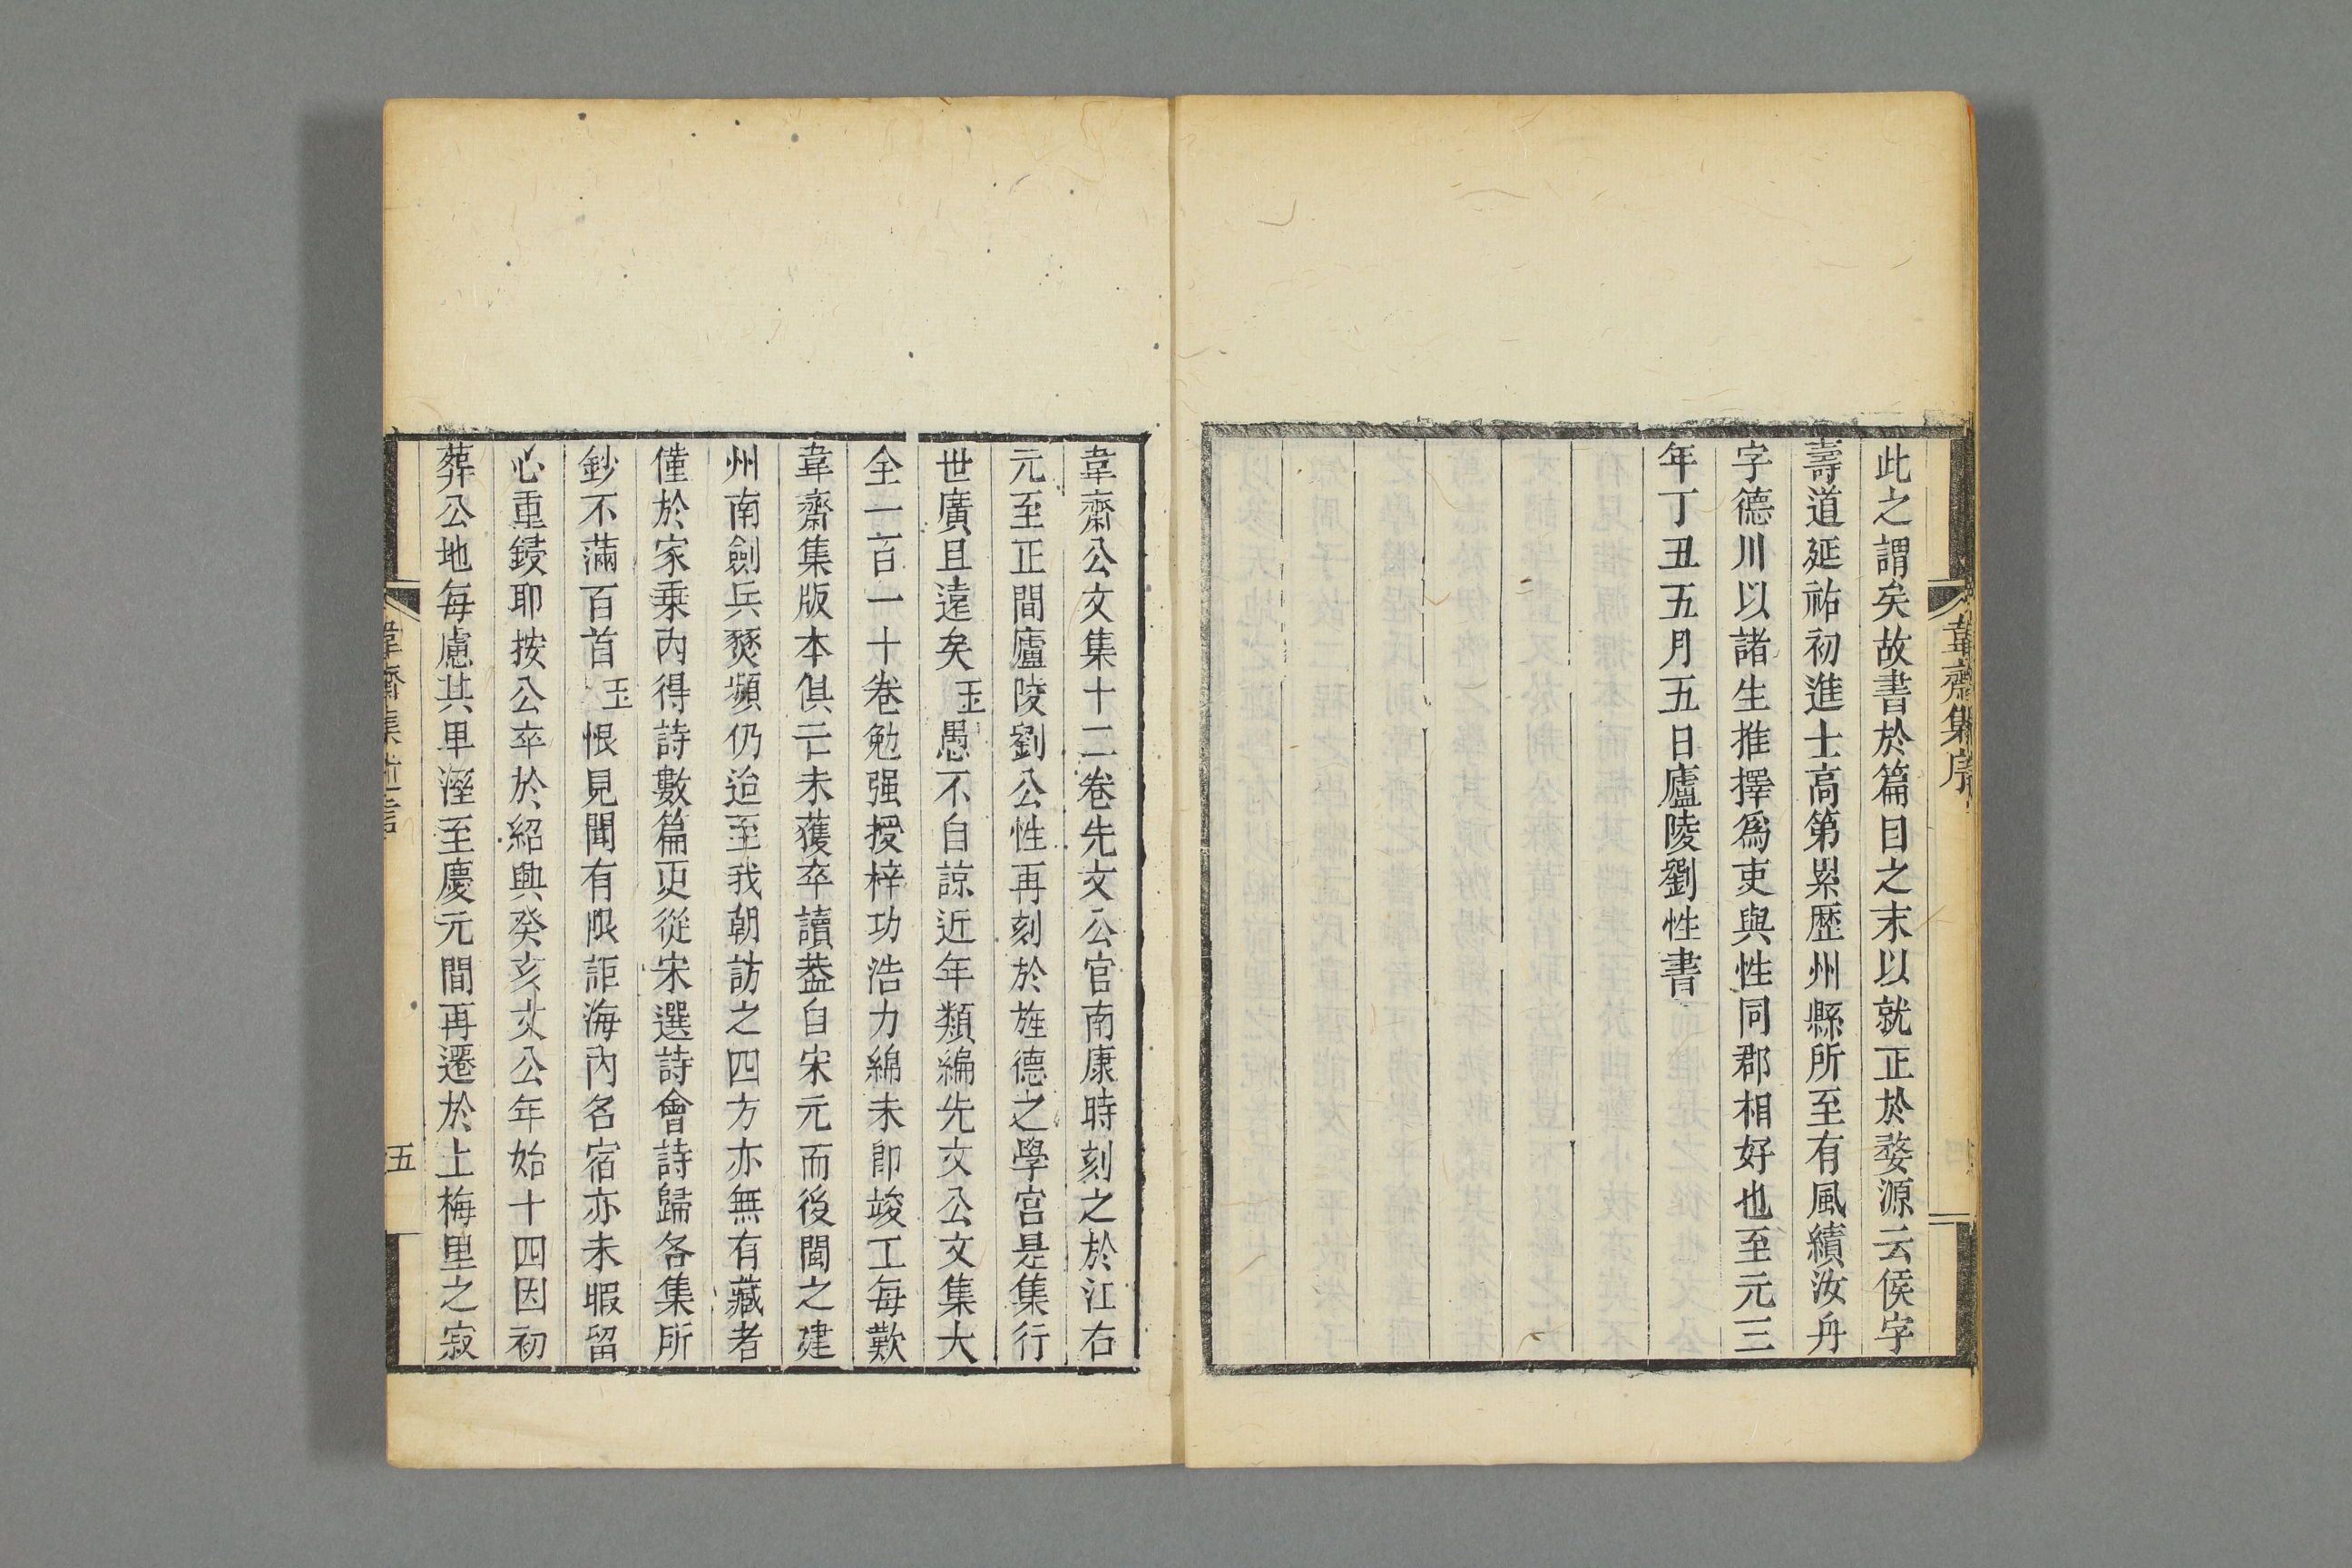 韋齋集序
此之謂矣故書於篇目之末以就正於婺源云侯字
壽道延祐初進士高第累歷州縣所至有風績汝舟
字德川以諸生推擇爲吏與性同郡相好也至元三
年丁丑五月五日廬陵劉性書
韋齋公文集十二卷先文公官南康時刻之於江右
元至正間廬陵劉公性再刻於旌德之學宮是集行
世廣且遠矣玉愚不自諒近年類編先文公文集大
全一百一十卷勉强授梓功浩力綿未即竣工每歎
韋齋集版本俱亡未獲卒讀葢自宋元而後閩之建
州南劍兵燹頻仍迨至我朝訪之四方亦無有藏者
僅於家乗內得詩數篇更從宋選詩會詩歸各集所
鈔不滿百首玉恨見聞有限詎海內名宿亦未暇留
心重鋟耶按公卒於紹興癸亥文公年始十四因初
葬公地每慮其卑溼至慶元間再遷於上梅里之寂
韋齋集
五